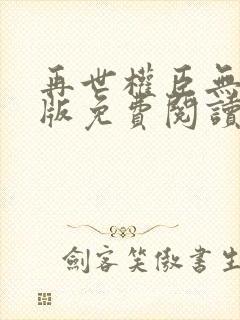 再世權臣無
版免費閱讀
劍客笑傲書生